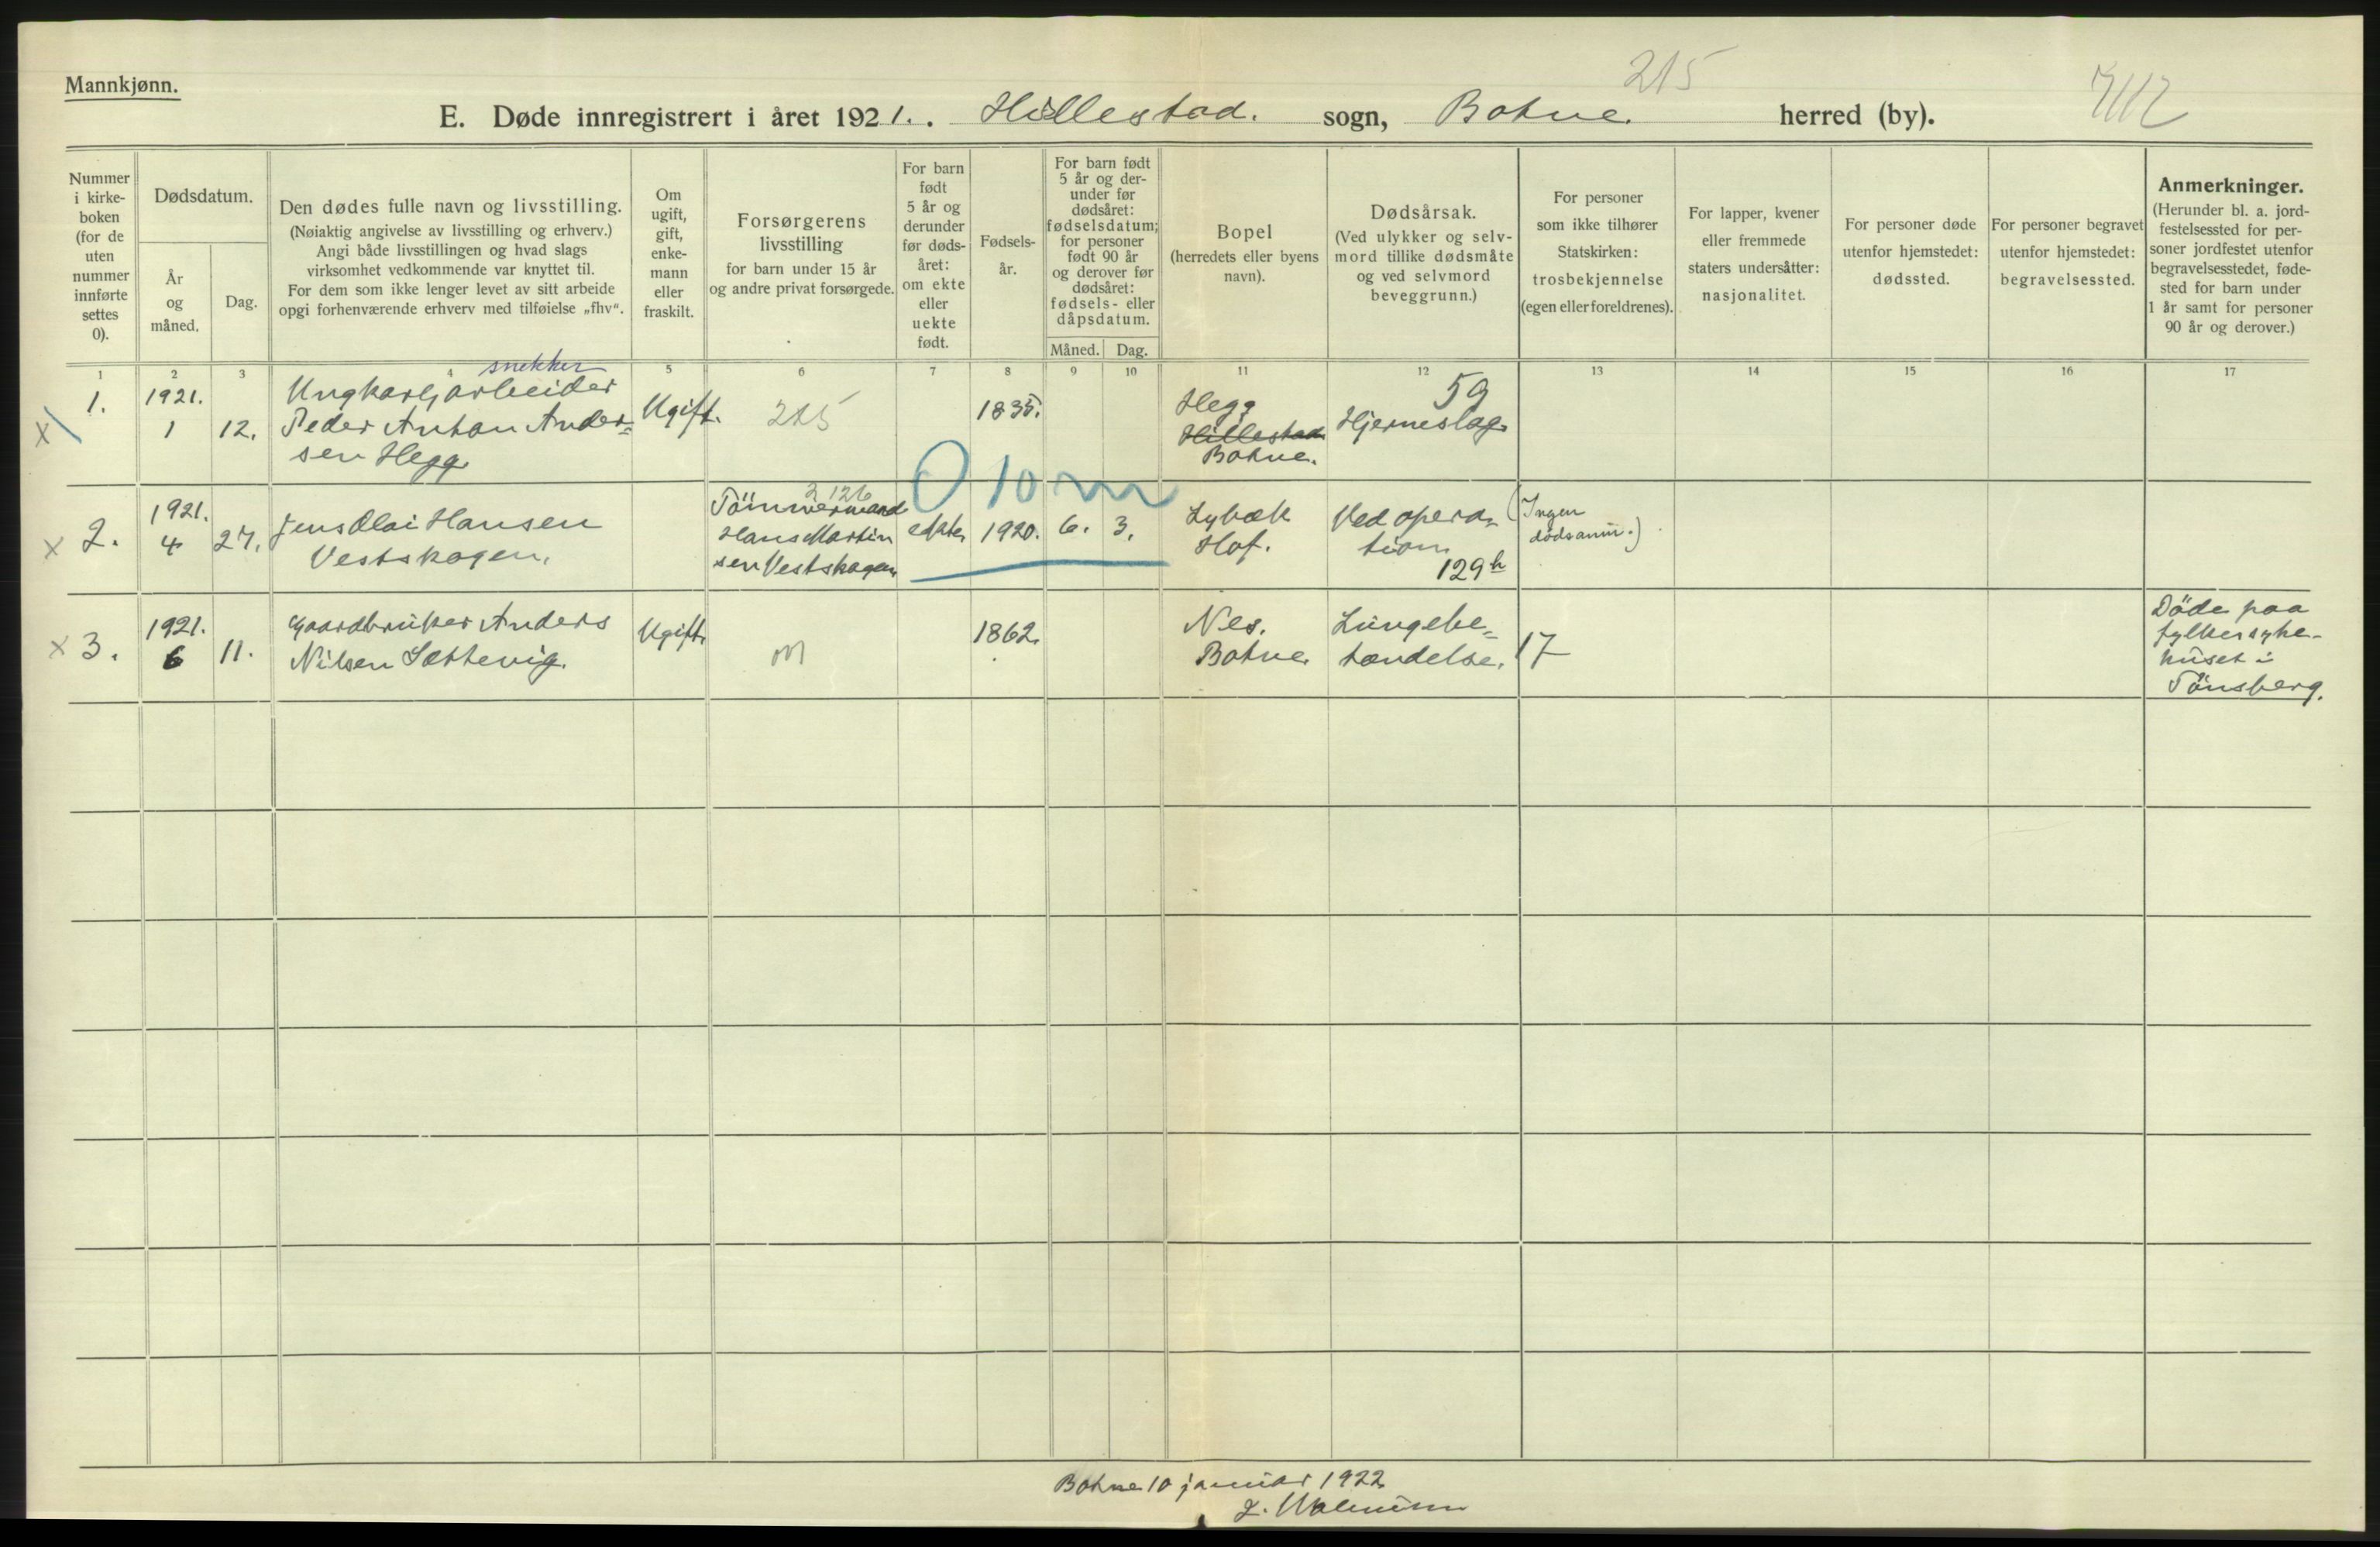 215
Mannkjønn.
E. Døde innregistrert i året 1921. Hillestad. sogn, Botne. herred (by).
Nummer
i kirke-
boken
(for de
uten
nummer
innførte
settes
0).
Dødsdatum.
År
og
måned.
Dag.
Den dødes fulle navn og livsstilling.
(Nøiaktig angivelse av livsstilling og erhverv.)
Angi både livsstillingen og hvad slags
virksomhet vedkommende var knyttet til.
For dem som ikke lenger levet av sitt arbeide
opgi forhenværende erhverv med tilføielse „fhv“.
Om
ugift,
gift,
enke-
mann
eller
fraskilt.
Forsørgerens
livsstilling
for barn under 15 år
og andre privat forsørgede.
For barn
født
5 år og
derunder
før døds-
året:
om ekte
eller
uekte
født.
Fødsels-
år.
For barn født
5 år og der-
under før
dødsåret:
fødselsdatum;
for personer
født 90 år
og derover før
dødsåret:
fødsels- eller
dåpsdatum.
Måned. Dag.
Bopel
(herredets eller byens
navn).
Dødsårsak.
(Ved ulykker og selv-
mord tillike dødsmåte
og ved selvmord
beveggrunn.)
For personer
som ikke tilhører
Statskirken:
trosbekjennelse
(egen eller foreldrenes).
For lapper, kvener
eller fremmede
staters undersåtter:
nasjonalitet.
For personer døde
utenfor hjemstedet:
dødssted.
For personer begravet
utenfor hjemstedet:
begravelsessted.
Anmerkninger.
(Herunder bl. a. jord-
festelsessted for per-
soner jordfestet utenfor
begravelsesstedet, føde-
sted for barn under
1 år samt for personer
90 år og derover.)
1 2 3 4 5 6 7 8 9 10 11 12 13 14 15 16 17
x
1.
1921.
1
12.
snekker
Ungkarl, arbeider
Peder Anton Ander=
sen Hegg.
Ugift.
215
1835.
Hegg
Hillestad
Botne.
59
Hjerneslag.
0 10 m
x
2.
1921.
4
27.
Jens Olai Hansen
Vestskogen.
2126
Tömmermand
Hans Martin
sen Vestskogen
ekte.
1920.
6.
3.
Lybæk
Hof.
Ved opera=
tion.
129 b
(Ingen
dødsanm.)
x
3.
1921.
6
11.
Gaardbruker Anders
Nilsen Sættevig.
Ugift.
m
1862.
Nes.
Botne.
Lungebe=
tændelse.
17
Döde paa
fylkessyke-
huset i
Tönsberg.
Botne 10 januar 1922